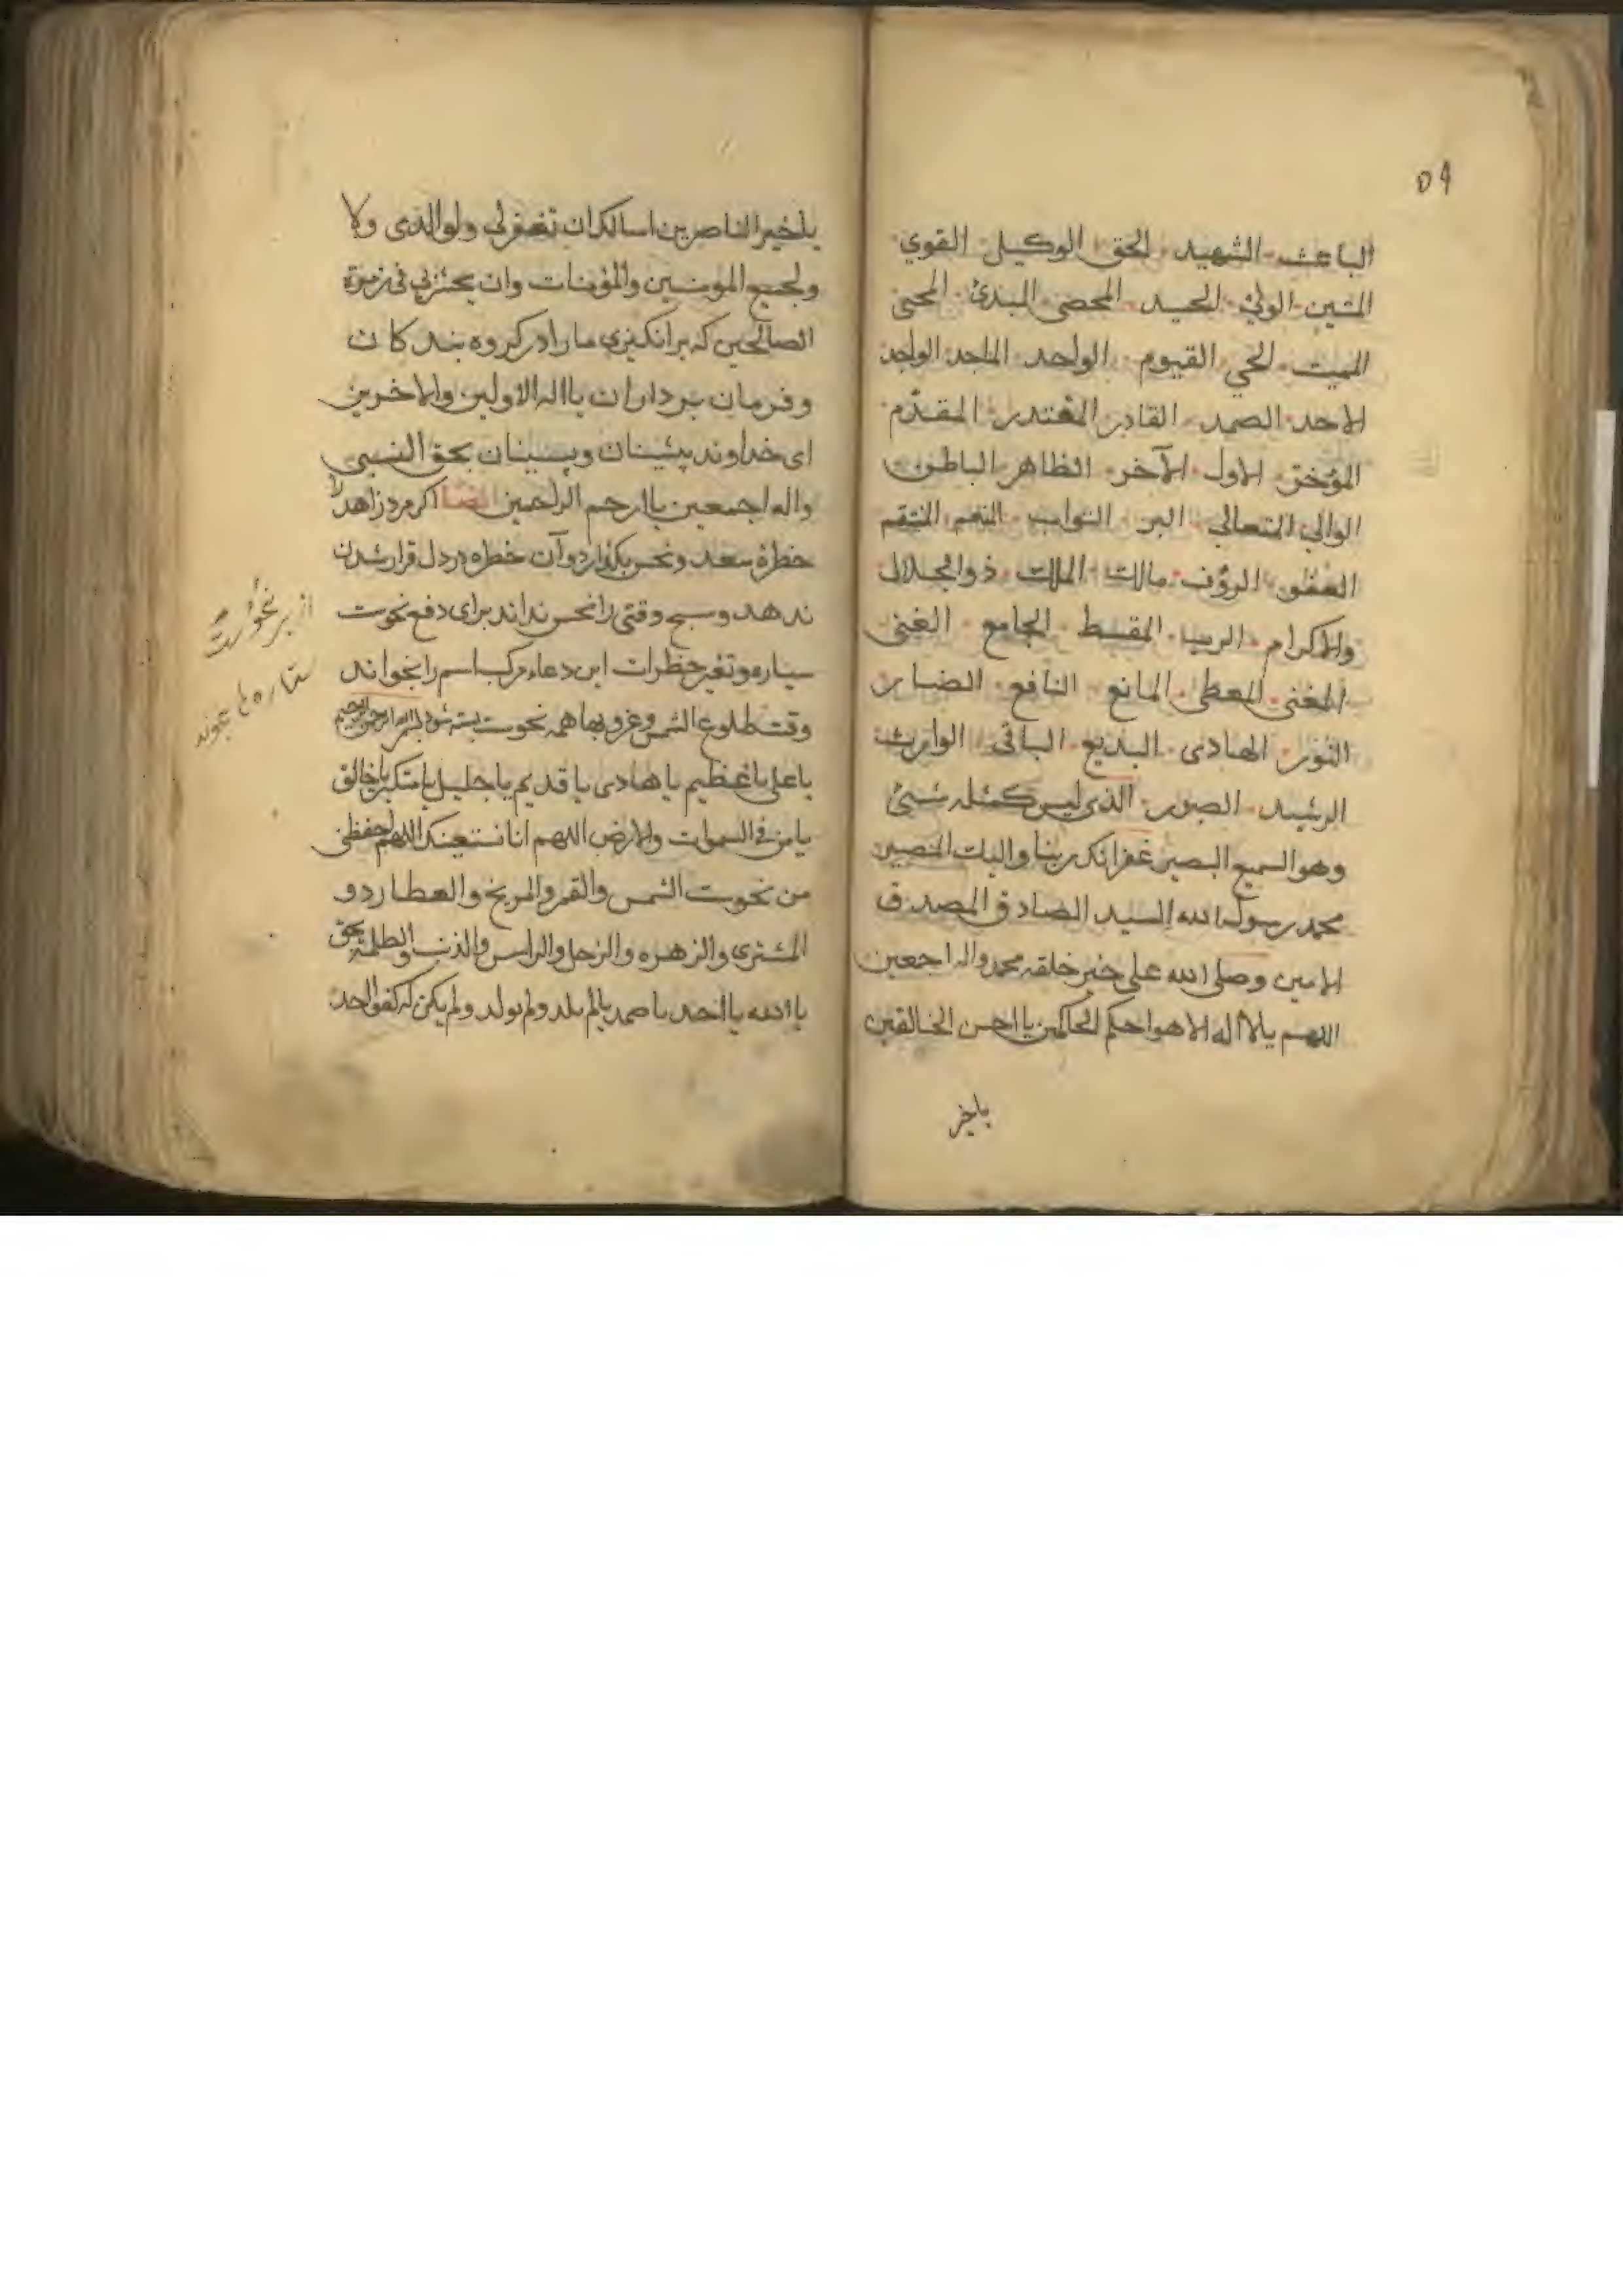 ٥٩
الباعث الشهيد الحق الوكيل القوي
المتين الولي الحميد المحصى المبدئ المحيى
المميت الحي القيوم الواحد الماجد الواجد
الاحد الصمد القادر المقتدر المقدّم
المؤخر الاول الآخر الظاهر الباطن
الوالي المتعالي البر التواب المنعم المنتقم
العفو الرؤف مالك الملك ذوالجلال
والاكرام الرب المقسط الجامع الغنى
المغنى المعطى المانع النافع الضار
النور الهادى البديع الباقى الوارث
الرشيد الصبور الذى ليس كمثله شيئ
وهو السميع البصير غفرانك ربنا واليك المصير
محمد رسول الله السيد الصادق المصدق
الامين وصلى الله على خير خلقه محمد واله اجمعين
اللهم يا لا اله الا هو احكم الحاكمين يا احسن الخالقين
ياخير
ياخير الناصرين اسالك ان تغفرلى ولوالدى ولا
ولجميع المومنين والمؤمنات وان يحشرني فى زمرة
الصالحين كه برانكيزى مارا در كروه بندكان
وفرمان برداران يا اله الاولين والاخرين
اى خداوند پيشينان وپسينان بحق النبى
واله اجمعين يا ارحم الراحمين ايضا اكر مرد زاهد را
خطرۀ سعد ونحس بكذارد وآن خطره در دل قرار شدن
ندهد وسبح وقتى را نحس نداند براى دفع نحوست
سياره وتغير خطرات اين دعاء مركب اسم را بخواند
وقت طلوع الشمس وغروبها همه نحوست بسته شود بسم الله الرحمن الرحيم
ياعلى ياعظيم ياهادى ياقديم ياجليل يامتكبر ياخالق
يامن فى السموات والارض اللهم انا نستعينك اللهم احفظنى
من نحوست الشمس والقمر والمريخ والعطارد و
المشترى والزهره والزحل والراس والذنب والظلمة بحق
يا الله يا احد يا صمد يا لم يلد ولم يولد ولم يكن له كفوا احد
از بر نحوست
ستاره ها بخوند